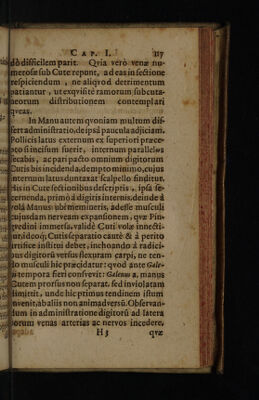 CAP. I. 117
dò difficilem parit. Quia verò venæ nu-
merosæ sub Cute repunt, ad eas in sectione
respiciendum, ne aliquod detrimentum
patiantur, ut exquisitè ramorum subcuta-
neorum distributionem contemplari
queas.
In Manu autem quoniam multum dif-
fert administratio, de ipsâ pauca adjiciam.
Pollicis latus externum ex superiori præce-
pto si incisum fuerit, internum parallelως
secabis, ac pari pacto omnium digitorum
Cutis bis incidenda, dempto minimo, cujus
internum latus duntaxat scalpello finditur.
His in Cute sectionibus descriptis, ipsa se-
cernenda, primò à digitis internis, deinde à
volâ Manus: ubi memineris, adesse musculi
cujusdam nerveam expansionem, quæ Pin-
gvedini immersa, validè Cuti volæ innecti-
tur, ideoq; Cutis separatio cautè & à perito
artifice institui debet, inchoando à radici-
bus digitorũ versus flexuram carpi, ne ten-
do musculi hîc præcidatur: quod ante Gale-
ni tempora fieri consvevit: Galenus a. manus
Cutem prorsus non separat, sed inviolatam
dimittit, unde hîc primus tendinem istum
invenit, ab aliis non animadversũ. Observan-
dum in administratione digitorũ ad latera
eorum venas arterias ac nervos incedere,
H 3 quæ